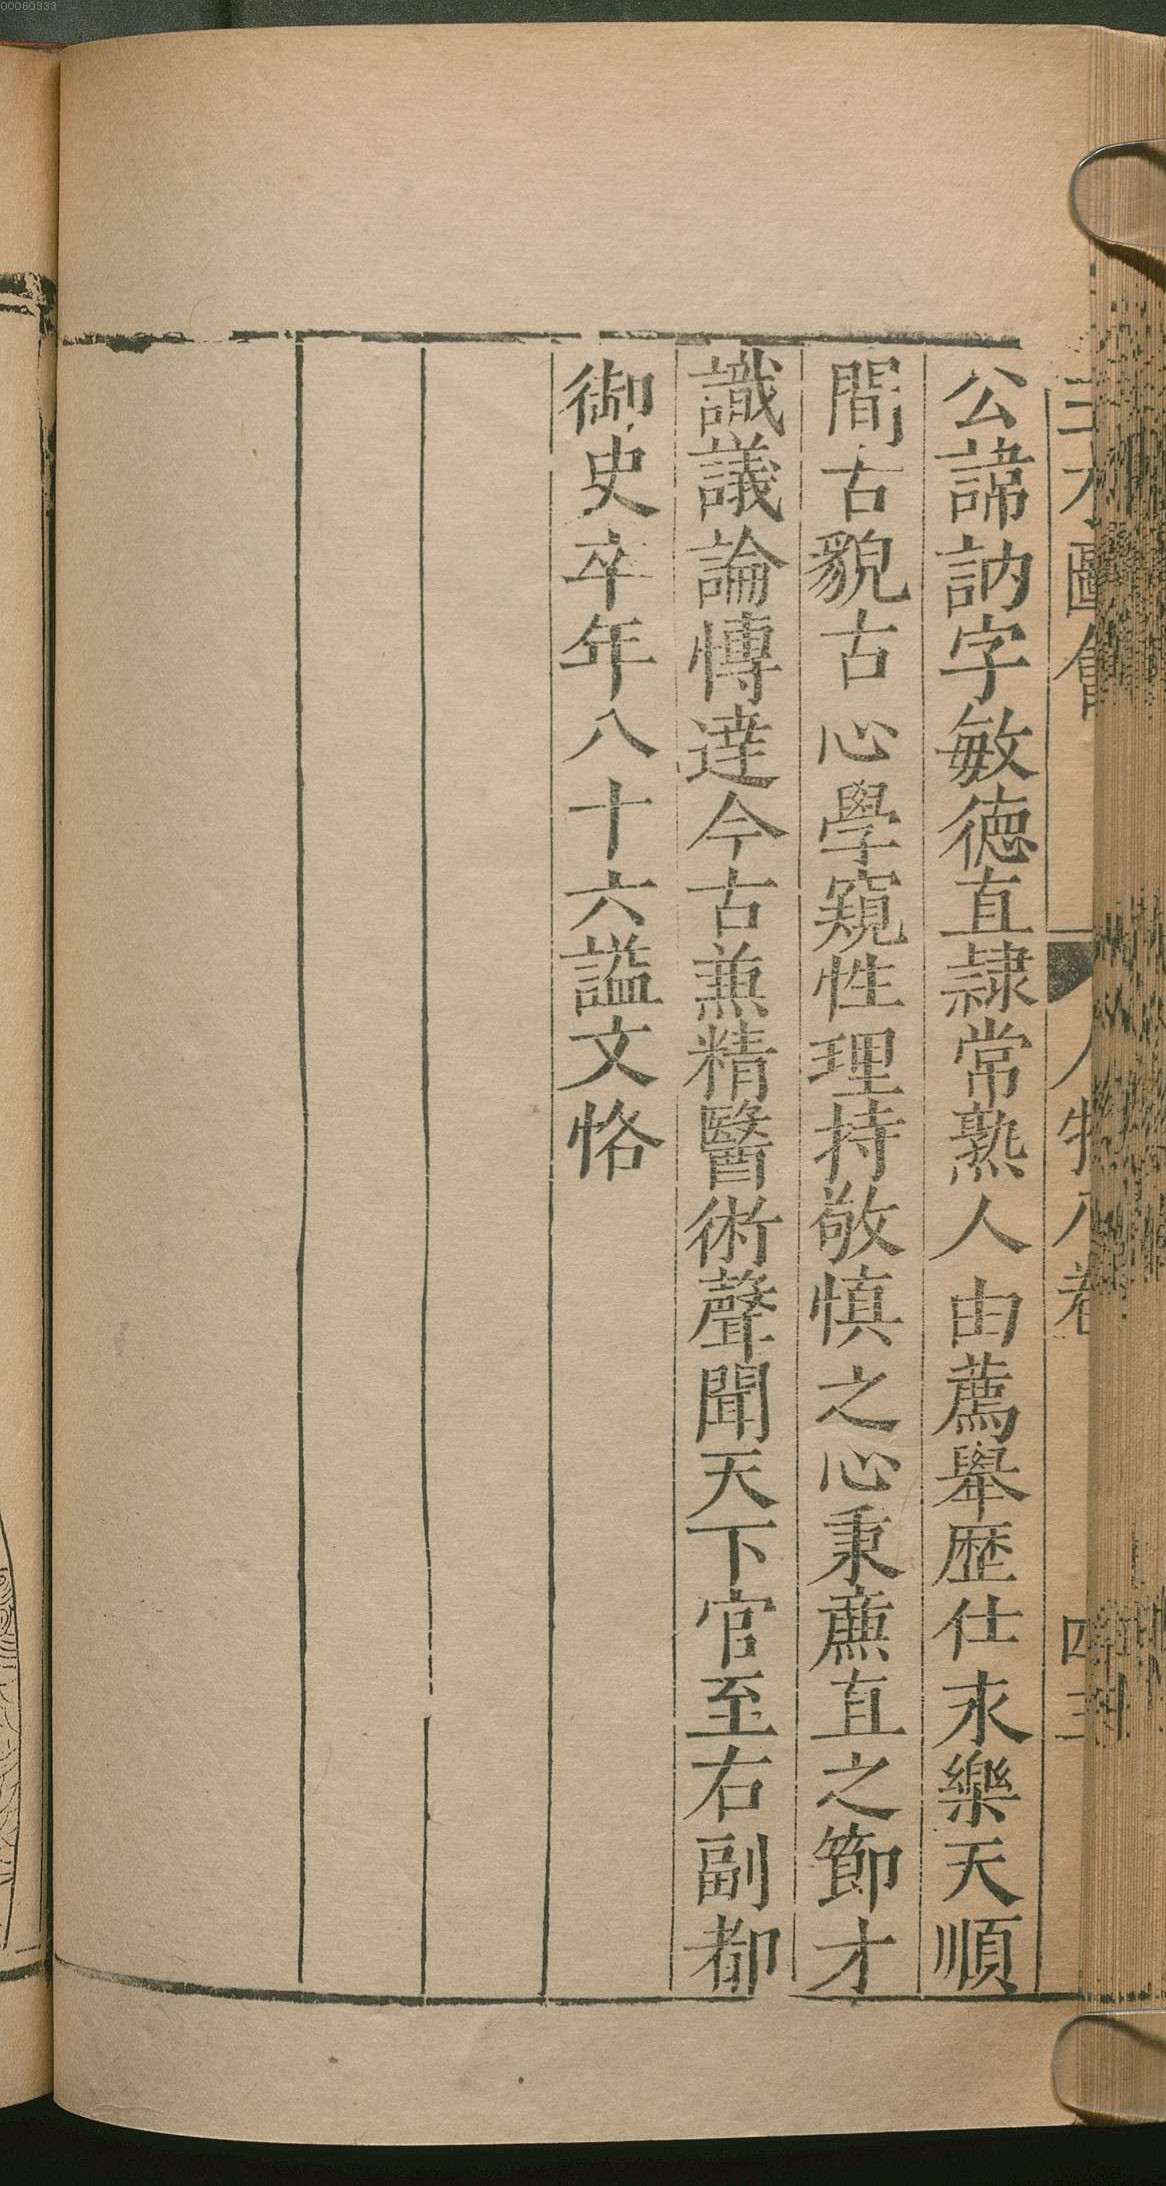 三才圖會 人物八卷 四三
公諱訥字敏徳直隷常熟人由薦舉歷仕永樂天順
間古貌古心學窺性理持敬慎之心秉亷直之節才
識議論愽達今古兼精醫術聲聞天下官至右副都
御史卒年八十六謚文恪
00060333